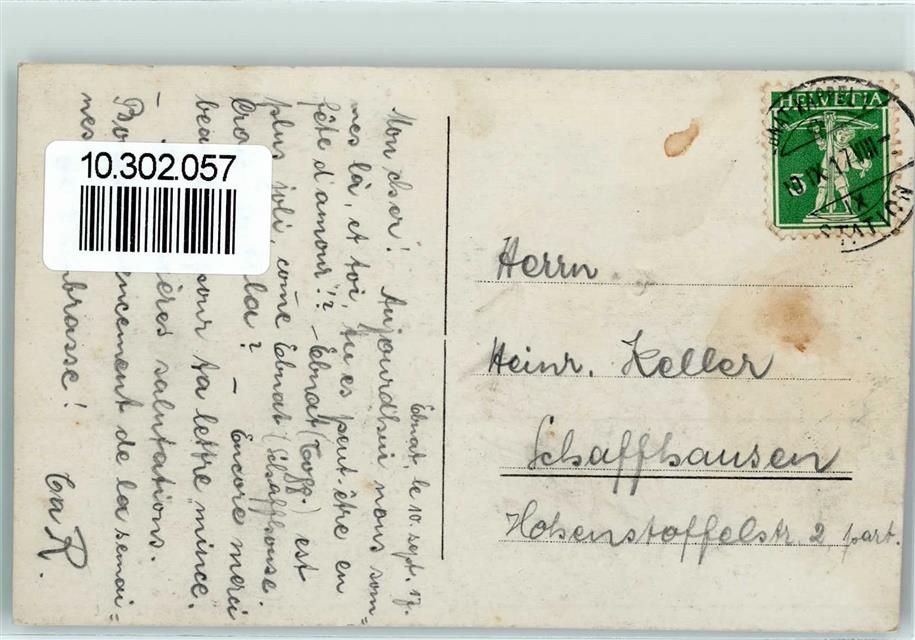 Ebnat, le 10. sept. 17.
Mon cher! Aujourdhui nous som-
mes là, et toi, tu es peut-être en
fête d'amour!? - Ebnat (Togg.) est
plus joli, come Ebnat (Schaffhouse.
Cro la? - Encore merci
bea sour ta lettre mince.
ères salutations.
Bo encement de la semai-
nes brasse!
Ta R.
10.302.057
HELVETIA
10 IX 17 VIII-
STATION
Herrn
Heinr. Keller
Schaffhausen
Hohenstoffelstr. 2, part.